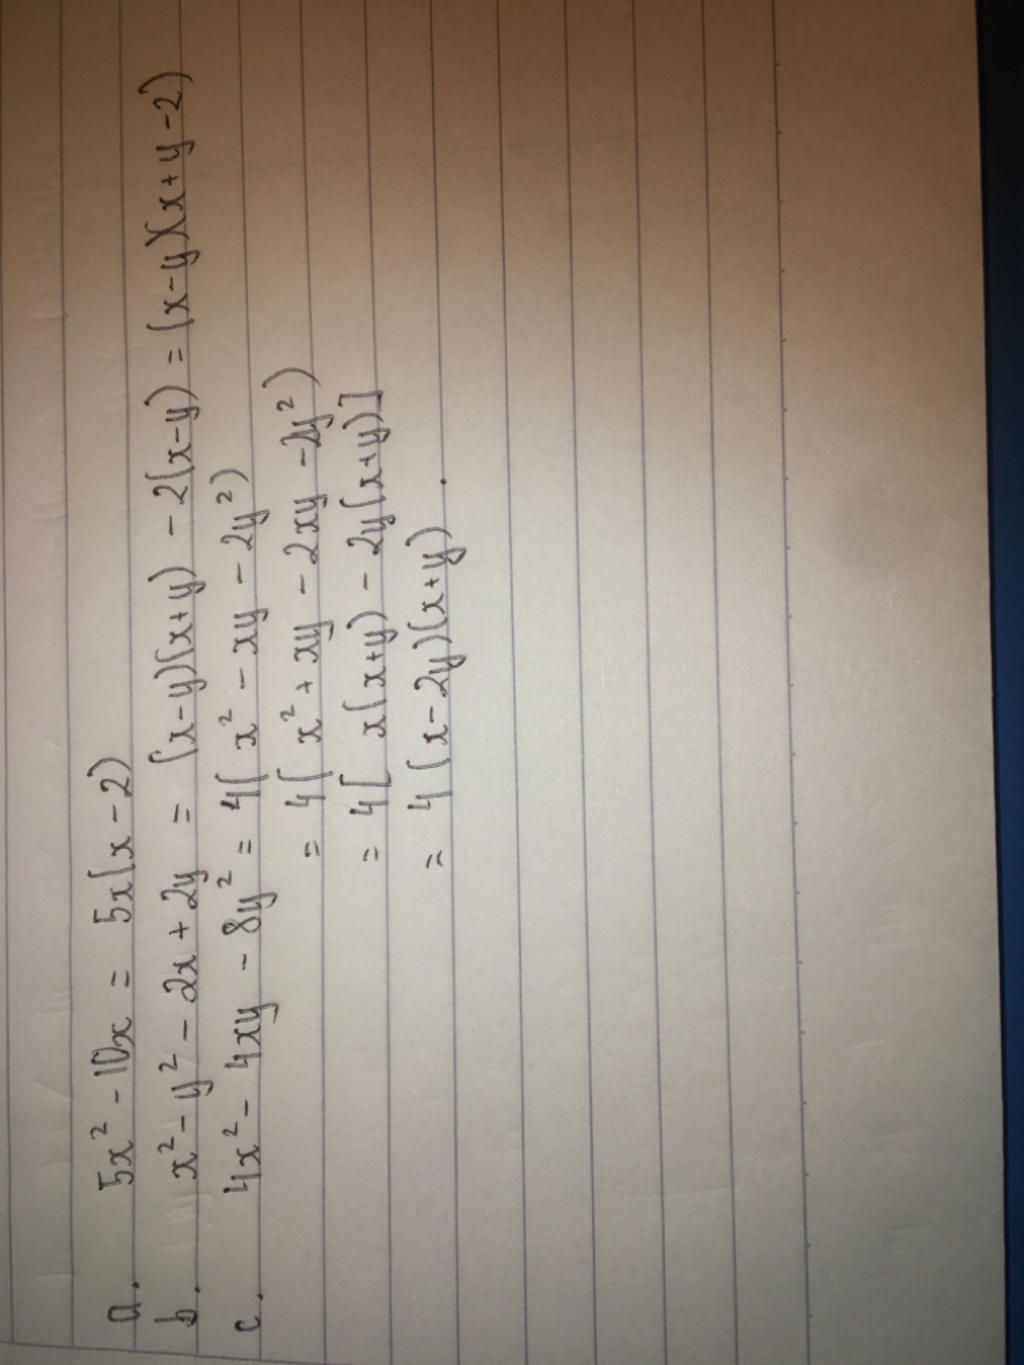 a. 5x² - 10x = 5x(x - 2)
b. x² - y² - 2x + 2y = (x-y)(x+y) - 2(x-y) = (x-y)(x+y-2)
c. 4x² - 4xy - 8y² = 4(x² - xy - 2y²)
= 4(x² + xy - 2xy - 2y²)
= 4[x(x+y) - 2y(x+y)]
= 4(x-2y)(x+y).